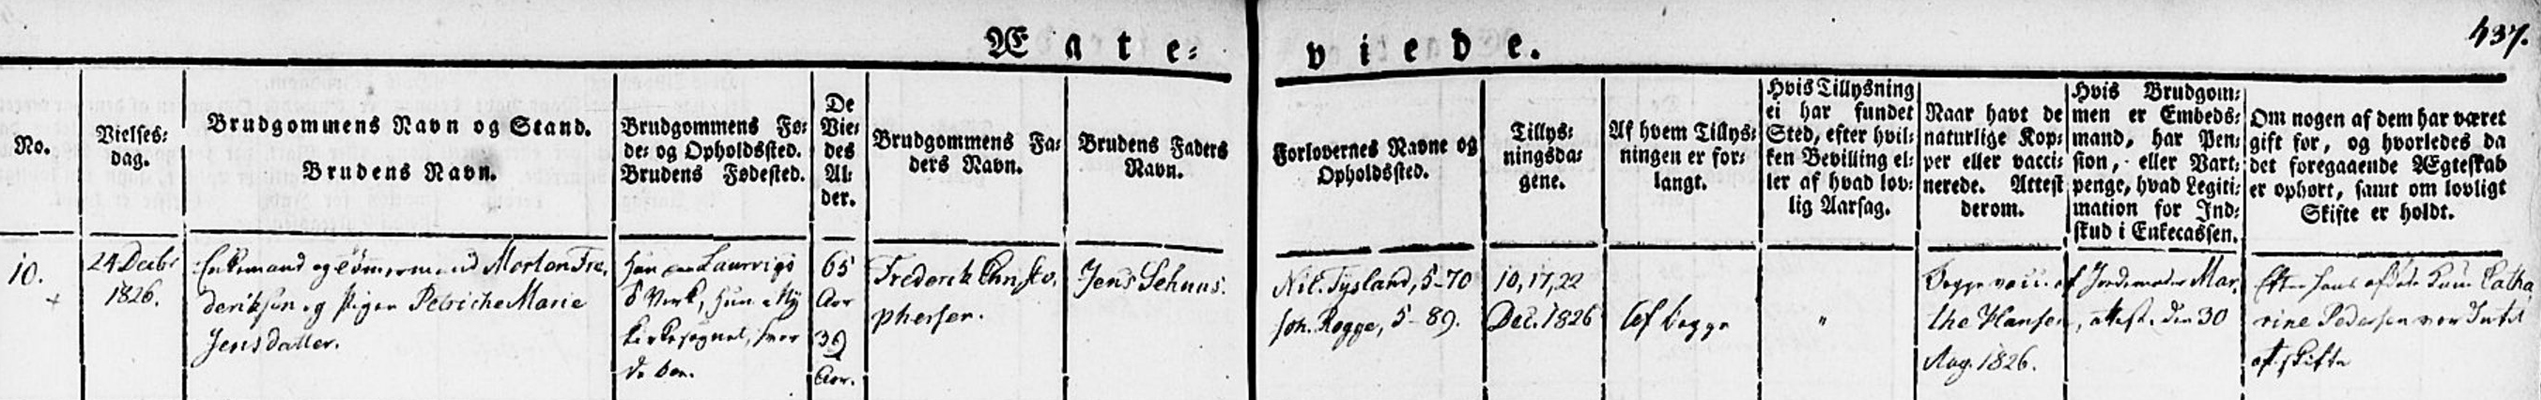 Ægte-viede.
437.
No.
Vielses-
dag.
Brudgommens Navn og Stand.
Brudens Navn.
Brudgommens Fø-
de- og Opholdssted.
Brudens Fødested.
De
Vie-
des
Al-
der.
Brudgommens Fa-
ders Navn.
Brudens Faders
Navn.
Forlovernes Navne og
Opholdssted.
Tillys-
ningsda-
gene.
Af hvem Tillys-
ningen er for-
langt.
Hvis Tillysning
ei har fundet
Sted, efter hvil-
ken Bevilling el-
ler af hvad lov-
lig Aarsag.
Naar havt de
naturlige Kop-
per eller vacci-
nerede. Attest
derom.
Hvis Brudgom-
men er Embeds-
mand, har Pen-
sion, eller Vart-
penge, hvad Legiti-
mation for Ind-
skud i Enkecassen.
Om nogen af dem har været
gift før, og hvorledes da
det foregaaende Ægteskab
er ophørt, samt om lovligt
Skifte er holdt.
10.
24 Decbr
1826.
Enkemand og Tømmermand Morten Fre-
deriksen og Pigen Petriche Marie
Jensdatter.
Han Laurvigs
Værk, hun
Kirkesognet, hvor
de boe.
65
Aar
39
Aar.
Frederik Christo-
phersen.
Jens
Nil. Tysland, 5-70
Joh. Rogge, 5-89.
10, 17, 22
Dec. 1826
Af begge
"
Begge vacc. af Jordemoder Mar-
the Hansen, attest. den 30
Aug. 1826.
Efter hans afdøde Kone Catha
rine Pedersen var Intet
at skifte